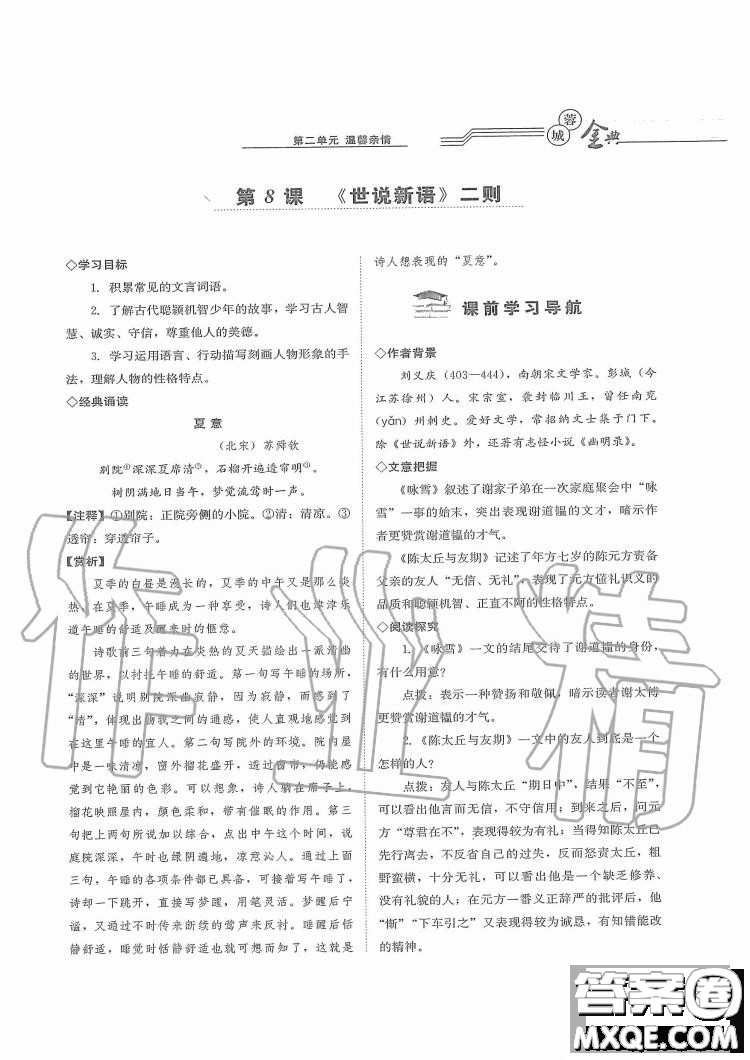 第二单元 温馨亲情
蓉城金典
第8课 《世说新语》二则
◇学习目标
1. 积累常见的文言词语。
2. 了解古代聪颖机智少年的故事，学习古人智
慧、诚实、守信，尊重他人的美德。
3. 学习运用语言、行动描写刻画人物形象的手
法，理解人物的性格特点。
◇经典诵读
夏意
（北宋）苏舜钦
别院①深深夏席清②，石榴开遍透帘明③。
树阴满地日当午，梦觉流莺时一声。
【注释】①别院：正院旁侧的小院。②清：清凉。③
透帘：穿透帘子。
【赏析】
夏季的白昼是漫长的，夏季的中午又是那么炎
热，在夏季，午睡成为一种享受，诗人们也津津乐
道午睡的舒适及醒来时的惬意。
诗歌前三句着力在炎热的夏天描绘出一派清幽
的世界，以衬托午睡的舒适。第一句写午睡的场所，
“深深”说明别院深幽寂静，因为寂静，而感到了
“清”，体现出物我之间的通感，使人直观地感觉到
在这里午睡的宜人。第二句写院外的环境。院内屋
中是一味清凉，窗外榴花盛开，透过窗帘，仍能感
觉到它艳丽的色彩。可以想象，诗人躺在席子上，
榴花映照屋内，颜色柔和，带有催眠的作用。第三
句把上两句所说加以综合，点出中午这个时候，说
庭院深深，午时也绿阴遍地，凉意沁人。通过上面
三句，午睡的各项条件都已具备，可接着写午睡了，
诗却一下跳开，直接写梦醒，用笔灵活。梦醒后宁
谧，又通过不时传来断续的莺声来反衬。睡醒后恬
静舒适，睡觉时恬静舒适也就可想而知了，这就是
诗人想表现的“夏意”。
课前学习导航
◇作者背景
刘义庆（403—444），南朝宋文学家。彭城（今
江苏徐州）人。宋宗室，袭封临川王，曾任南兖
（yǎn）州刺史。爱好文学，常招纳文士集于门下。
除《世说新语》外，还著有志怪小说《幽明录》。
◇文意把握
《咏雪》叙述了谢家子弟在一次家庭聚会中“咏
雪”一事的始末，突出表现谢道韫的文才，暗示作
者更赞赏谢道韫的才气。
《陈太丘与友期》记述了年方七岁的陈元方责备
父亲的友人“无信、无礼”，表现了元方懂礼识义的
品质和聪颖机智、正直不阿的性格特点。
◇阅读探究
1. 《咏雪》一文的结尾交待了谢道韫的身份，
有什么用意？
点拨：表示一种赞扬和敬佩，暗示读者谢太傅
更赞赏谢道韫的才气。
2. 《陈太丘与友期》一文中的友人到底是一个
怎样的人？
点拨：友人与陈太丘“期日中”，结果“不至”，
可以看出他言而无信，不守信用；到之后，问元
方“尊君在不”，表现得较为有礼；当得知陈太丘已
先行离去，不反省自己的过失，反而怒责太丘，粗
野蛮横，十分无礼，可以看出他是一个缺乏修养、
没有礼貌的人；在元方一番义正辞严的批评后，他
“惭”“下车引之”又表现得较为诚恳，有知错能改
的精神。
作业精
答案圈
MXQE.COM